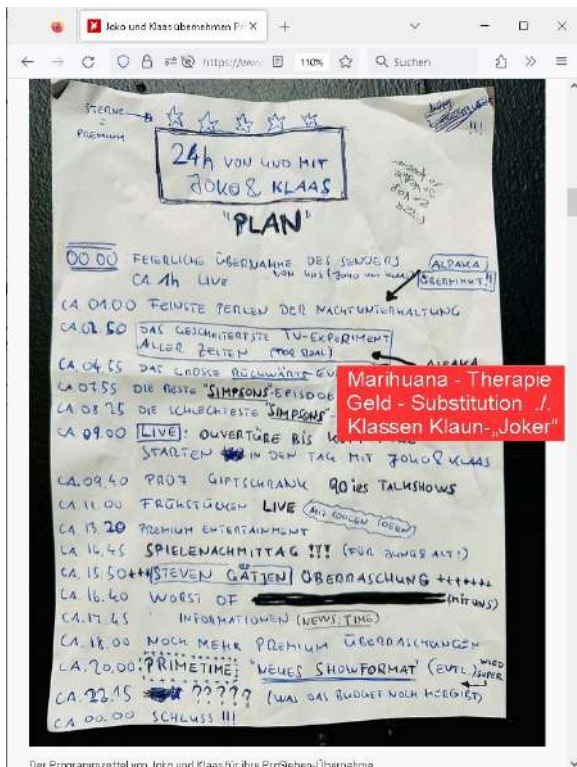 Joko und Klaas übernehmen Pr
https://www.
110%
Suchen
STERNE
=
PREMIUM
!!!
24h VON UND MIT
JOKO & KLAAS
"PLAN"
00.00 FEIERLICHE ÜBERNAHME DES SENDERS
VON UNS (JOKO UND KLAAS)
CA 1h LIVE
ALPAKA
ÜBERNIMMT!!
CA 01.00 FEINSTE PERLEN DER NACHTUNTERHALTUNG
DAS GESCHEITERTSTE TV-EXPERIMENT
ALLER ZEITEN (FOR REAL)
CA. 04.55 DAS GROSSE RÜCKWÄRTS
ALPAKA
CA 07.55 DIE BESTE "SIMPSONS"-EPISODE
CA 08.25 DIE SCHLECHTESTE "SIMPSONS"-
Marihuana - Therapie
Geld - Substitution ./.
Klassen Klaun-„Joker"
CA 09.00 LIVE: OUVERTÜRE BIS
STARTEN IN DEN TAG MIT JOKO & KLAAS
CA. 09.40 PRO7 GIFTSCHRANK 90ies TALKSHOWS
CA. 11.00 FRÜHSTÜCKEN LIVE (MIT COOLEN IDEEN)
CA 13.20 PREMIUM ENTERTAINMENT
CA. 14.45 SPIELENACHMITTAG !!! (FÜR JUNG & ALT!)
CA. 15.50 +++ STEVEN GÄTJEN ÜBERRASCHUNG +++++++
CA. 16.40 WORST OF (MIT UNS)
CA. 17.45 INFORMATIONEN (NEWS TIME)
CA. 18.00 NOCH MEHR PREMIUM ÜBERRASCHUNGEN
CA. 20.00 PRIMETIME: "NEUES SHOWFORMAT" (EVTL.) WIRD SUPER
CA. 22.15 ????? (WAS DAS BUDGET NOCH HERGIBT)
CA 00.00 SCHLUSS !!!
Der Programmzettel von Joko und Klaas für ihre ProSieben-Übernahme